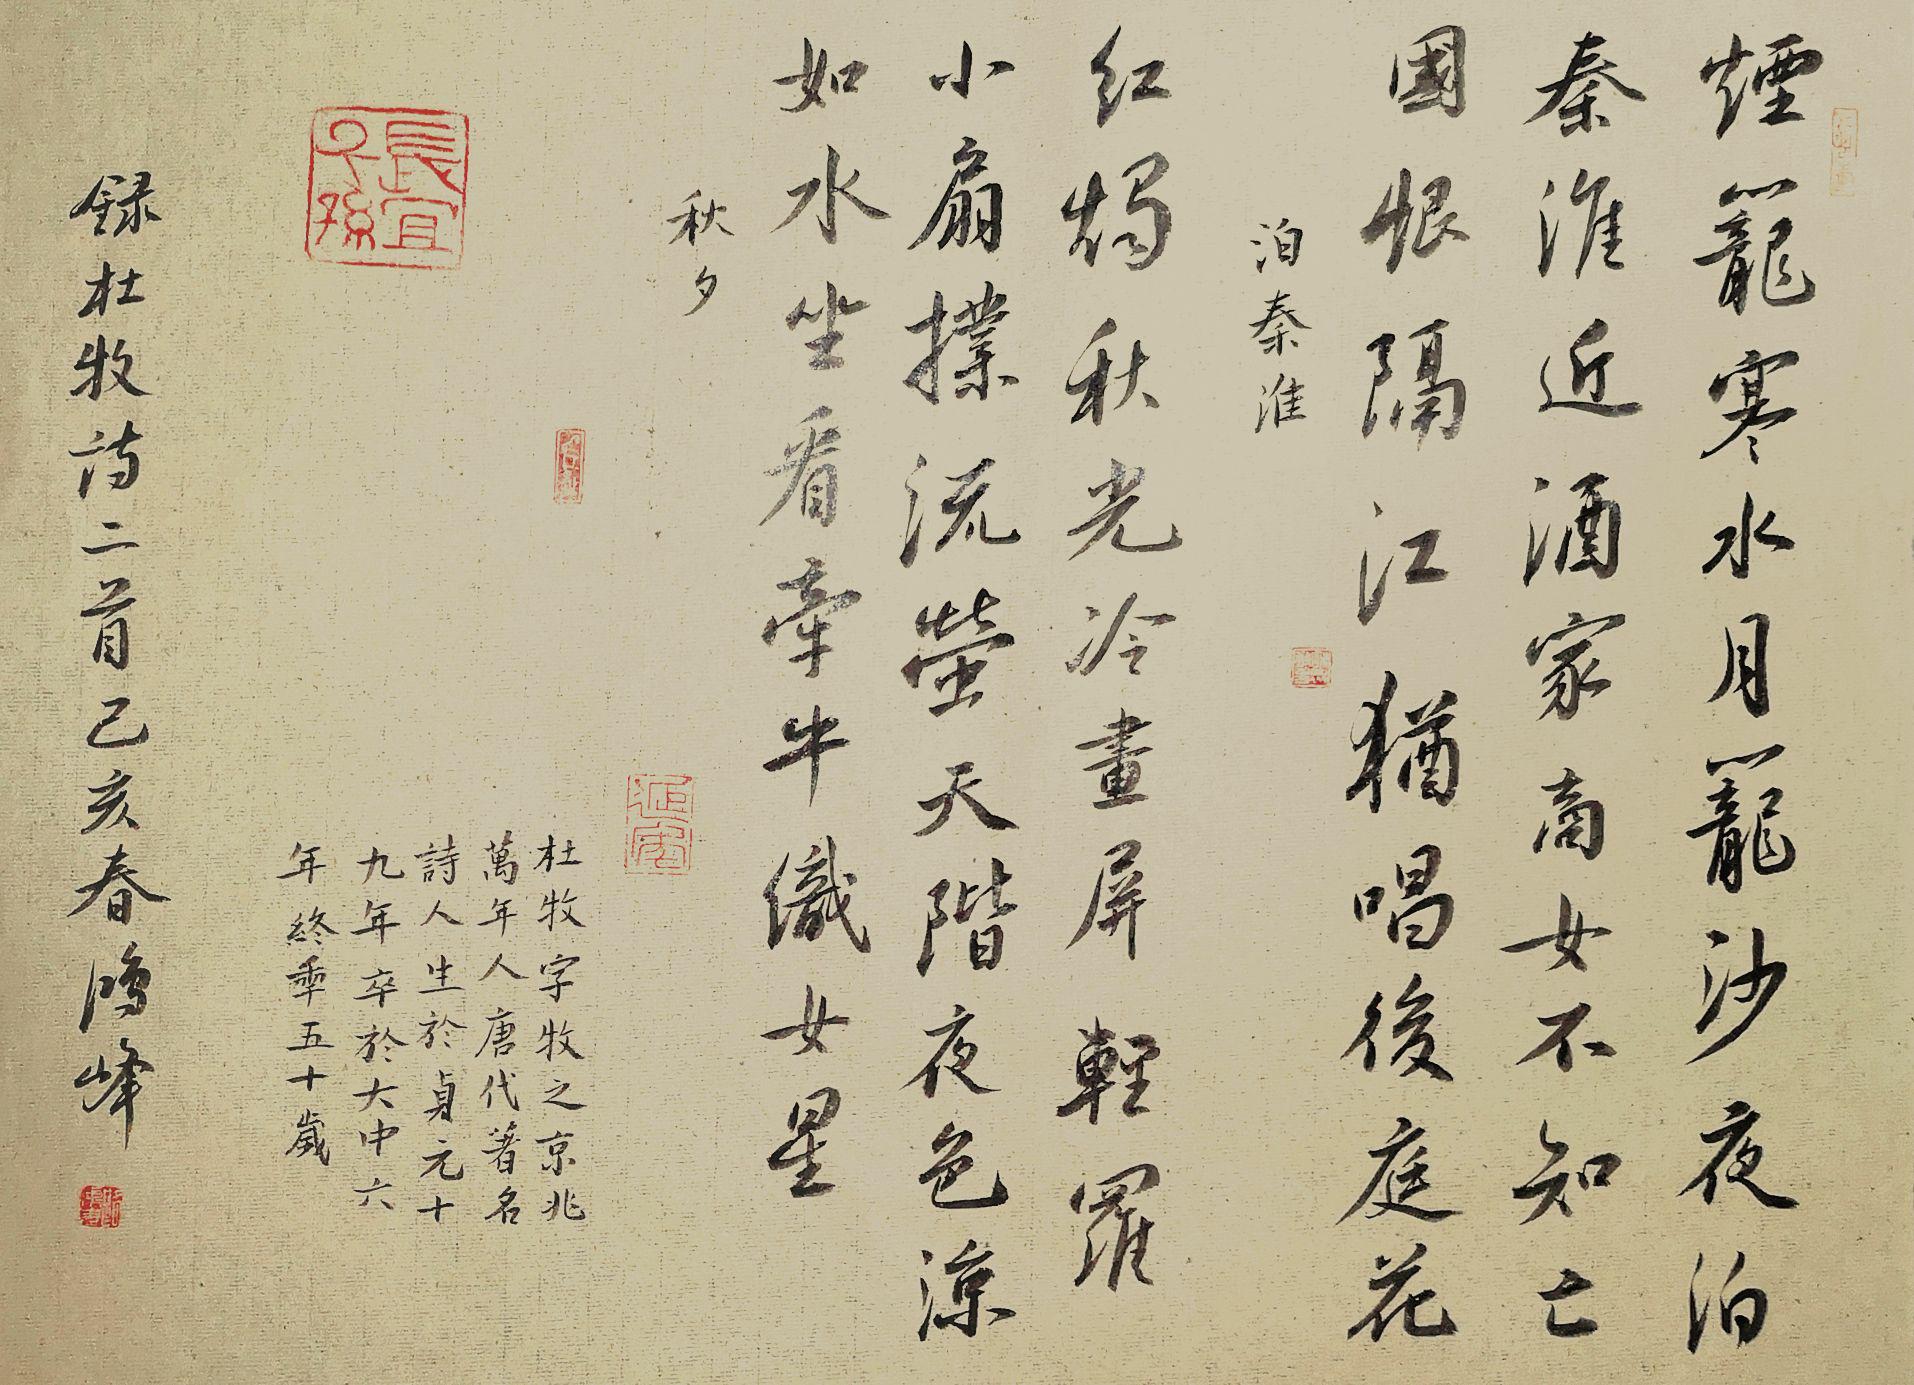 煙籠寒水月籠沙夜泊
秦淮近酒家商女不知亡
國恨隔江猶唱後庭花
泊秦淮
红燭秋光冷畫屏輕羅
小扇撲流螢天階夜色涼
如水坐看牽牛織女星
秋夕
杜牧字牧之京兆
萬年人唐代著名
詩人生於貞元十
九年卒於大中六
年終年五十歲
長宜
子孫
録杜牧诗二首己亥春鴻峰